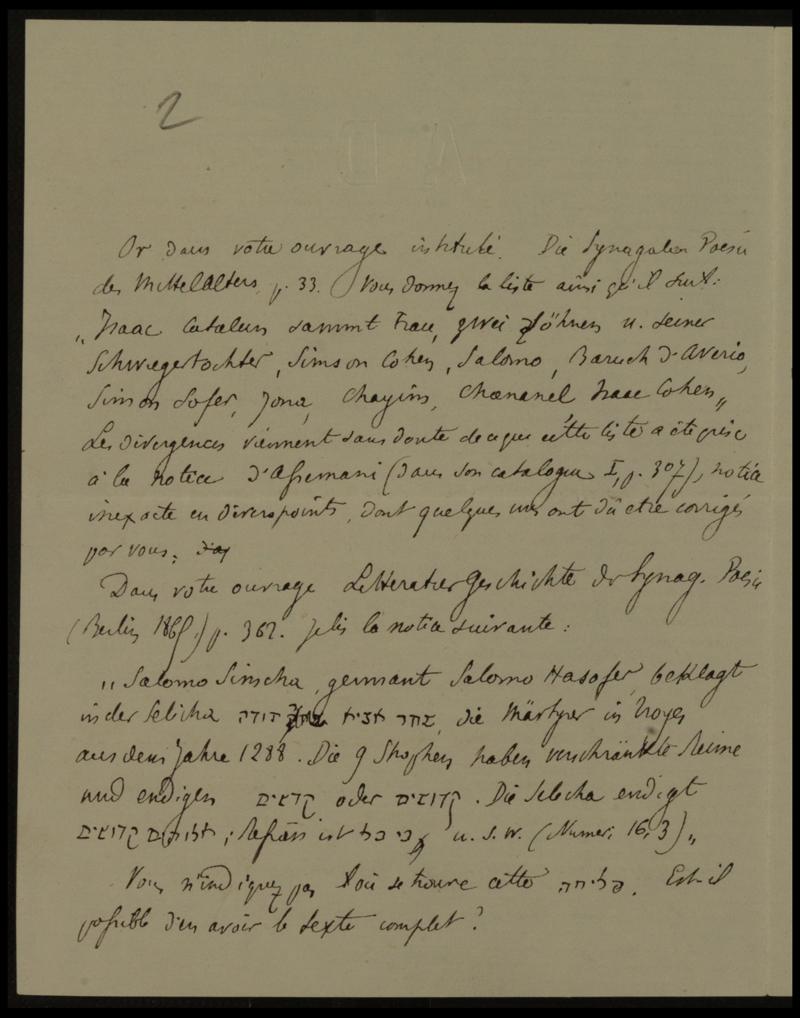 2
A D
Or dans votre ouvrage intitulé. Die Synagalen Poesie
des Mittelalters, p. 33. Vous donnez la liste ainsi qu'il suit:
„Isaac Catalun sammt Frau, zwei Söhnen u. seiner
Schwiegertochter, Simson Cohen, Salomo, Baruch d'Averio,
Simson Sofer, Jona, Chayim, Chananel Isaac Cohen„
Les divergences viennent sans doute de ce que cette liste a été prise
à la notice d'Assemani (dans son catalogue I, p. 307), notice
inexacte en divers points, dont quelques uns ont dû etre corrigés
par vous.
Dans votre ouvrage Litteratur Geschichte der Synag. Poesie
(Berlin 1865.) p. 362. Je lis la notice suivante:
„Salomo Simcha, gennant Salomo Hasofer, beklagt
in der Selicha יהודה die Märtyrer in Troyes
aus dem Jahre 1288. Die 9 Strophen haben verschränkte Reime
und endigen קדשים oder קדושים. Die Selicha endigt
קדושים; Refrain ist כי כל u. s. w. (Numer. 16, 3)„
Vous n'indiquez pas d'où se trouve cette סליחה. Est-il
possible d'en avoir le texte complet?